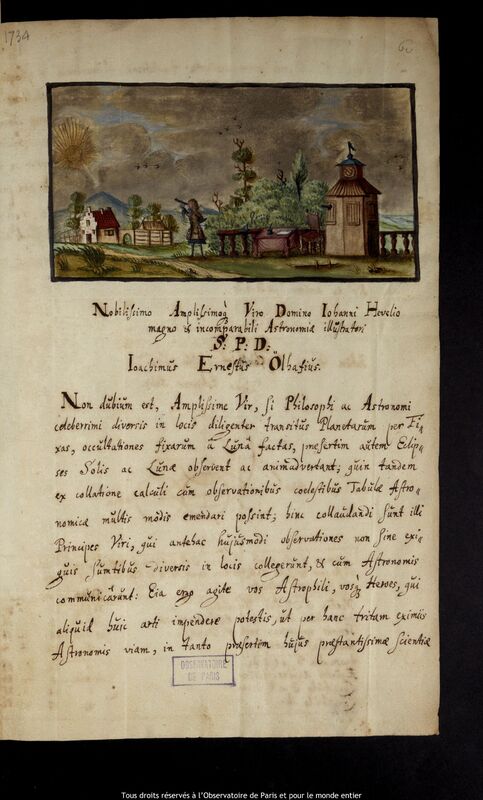 1734
60
Nobilissimo Amplissimoq; Viro Domino Iohanni Hevelio
magno & incomparabili Astronomiæ illustratori
S: P: D:
Ioachimus Ernestus Ölhafius.
Non dubium est, Amplissime Vir, si Philosophi ac Astronomi
celeberrimi diversis in locis diligenter transitus Planetarum per Fi-
xas, occultationes fixarum à Lunâ factas, præsertim autem Eclip-
ses Solis ac Lunæ observent ac animadvertant; quin tandem
ex collatione calculi cum observationibus coelestibus Tabulæ Astro-
nomicæ multis modis emendari possint; hinc collaudandi sunt illi
Principes Viri, qui antehac hujusmodi observationes non sine exi-
guis sumtibus diversis in locis collegerunt, & cum Astronomis
communicârunt: Eia ergo agite vos Astrophili, vosq; Heroes, qui
aliquid huic arti impendere potestis, ut per hanc tritam eximiis
Astronomis viam, in tanto præsertim hujus præstantissimæ scientiæ
OBSERVATOIRE
DE PARIS
Tous droits réservés à l'Observatoire de Paris et pour le monde entier